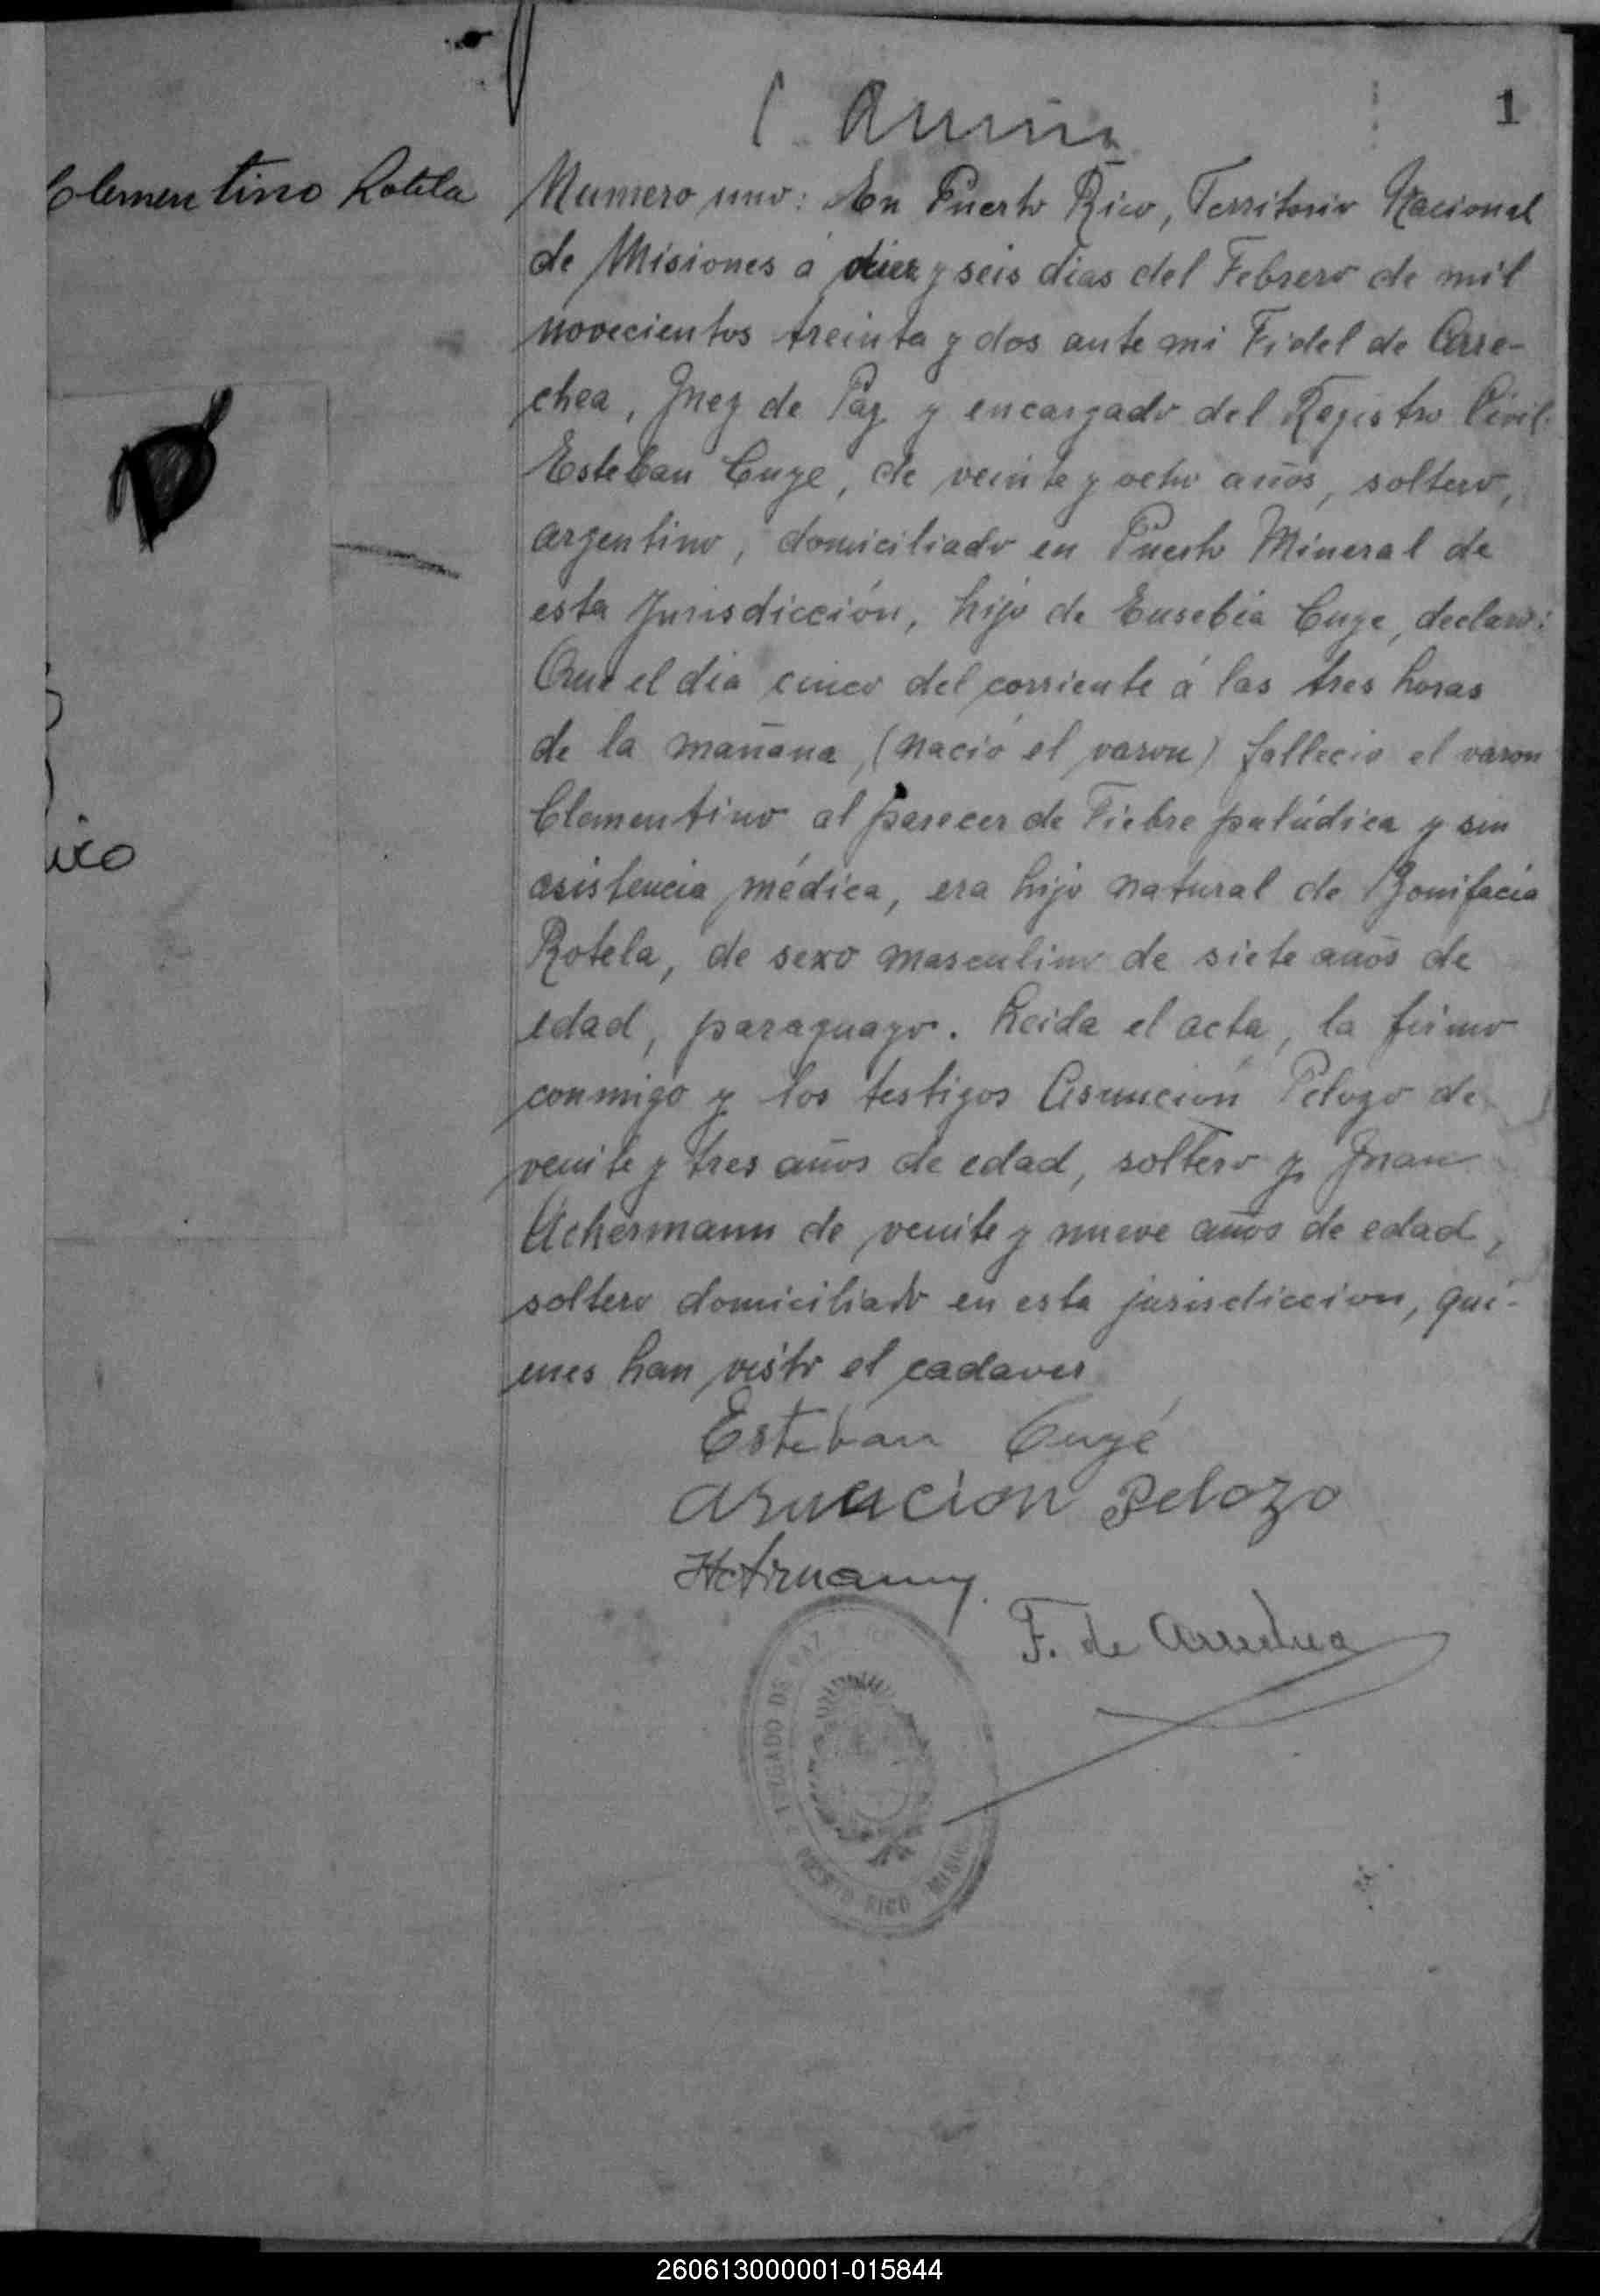 1
Clementino Rotela
Numero uno: En Puerto Rico, Territorio Nacional
de Misiones á diez y seis dias del Febrero de mil
novecientos treinta y dos ante mi Fidel de Arre-
chea, Juez de Paz y encargado del Registro Civil
Esteban Cuye, de veinte y ocho años, soltero,
argentino, domiciliado en Puerto Mineral de
esta Jurisdicción, hijo de Eusebia Cuye, declaró:
Que el dia cinco del corriente á las tres horas
de la mañana, (nació el varon) fallecio el varon
Clementino al parecer de Fiebre palúdica y sin
asistencia médica, era hijo natural de Bonifacia
Rotela, de sexo masculino de siete años de
edad, paraguayo. Leida el acta, la firmo
conmigo y los testigos Asunción Pelozo de
veinte y tres años de edad, soltero y Juan
Achermann de veinte y nueve años de edad,
soltero domiciliado en esta jurisdiccion, qui-
enes han visto el cadaver
Esteban Cuyé
asuncion Pelozo
F. de Arrechea
JUZGADO DE PAZ
PUERTO RICO MISIO
ico
260613000001-015844